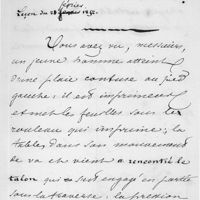 février
Leçon du 28 janvier 1892.
Vous avez vu, messieurs,
un jeune homme atteint
d'une plaie contuse au pied
gauche: il est imprimeur
et met les feuilles sous les
rouleaux qui impriment; la
table, dans son mouvement
de va et vient a rencontré le
talon qui s'est engagé en partie
sous la traverse; la pression